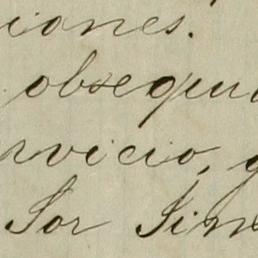 iones.
obsequi
rvicio, g
Sor Jin